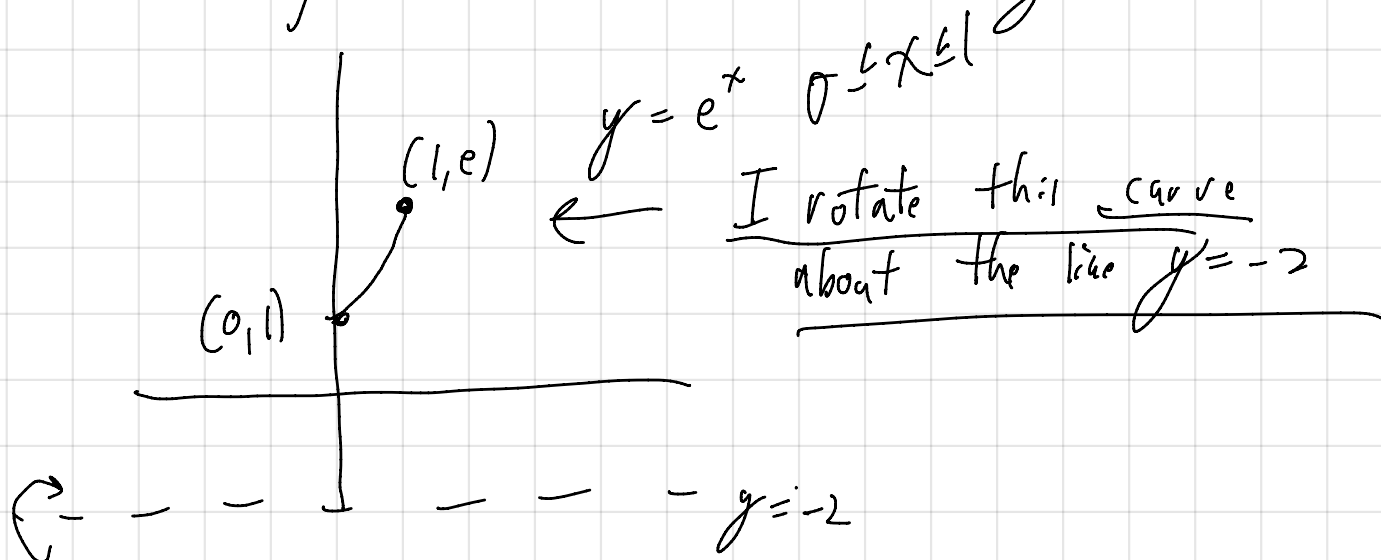 y = e^x 0 ≤ x ≤ 1
(1,e)
I rotate this curve
about the line y = -2
(0,1)
y = -2